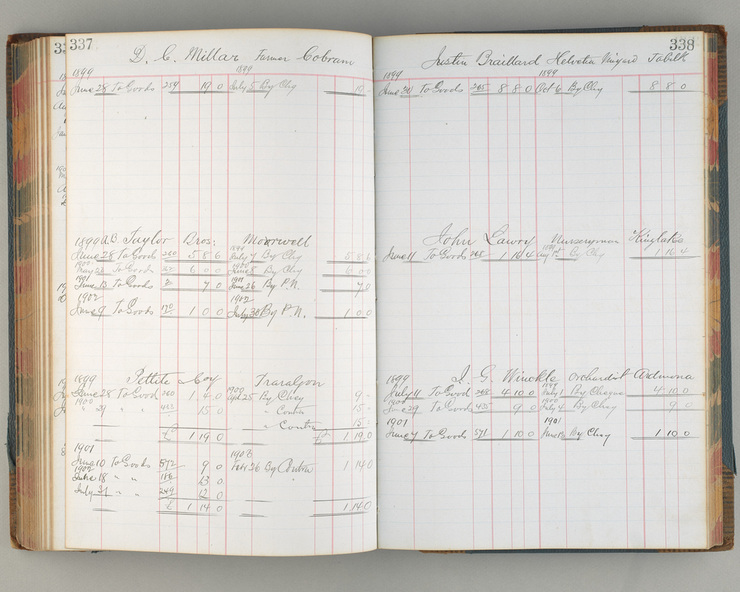 337
D. C. Millar Farmer Cobram
1899 1899
June 28 To Goods 259 19 0 July 5 By Chq 19 -
1899 A B Taylor Bros: Moorwell
June 28 To Goods 260 5 8 6 July 7 By Chq 5 8 6
1900 1900
May 22 To Goods 6 0 0 June 8 By Chq 6 0 0
1901 1901
June 13 To Goods 7 0 June 26 By P.N. 7 0
1902 1902
June 9 To Goods 120 1 0 0 July 30 By P.N. 1 0 0
1899 Pettite & Coy Traralgon
June 28 To Good 260 1 4 0 1900 25 By Chq 9 -
1900
" 29 " " 433 15 0 " Contra 15 -
" Contra 15
£ 1 19 0 £ 1 19 0
1901 1903
June 10 To Goods 572 9 0 26 By Contra 1 14 0
1902
June 18 " " 186 13 0
July 31 " " 249 12 0
£ 1 14 0 1 14 0
338
Justin Braillard Helvetia Vineyard Tabilk
1899 1899
June 30 To Goods 265 8 8 0 Oct 6 By Chq 8 8 0
John Lawry Nurseryman Kinglake
June 11 To Goods 1 10 4 1899 By Chq 1 10 4
1899 J. G. Winckle Orchardist Ardmona
July 11 To Good 4 10 0 1899 By Cheque 4 10 0
1900 1900
June 29 To Goods 435 9 0 July 4 By Chq 9 0
1901 1901
June 7 To Goods 571 1 10 0 June By Chq 1 10 0